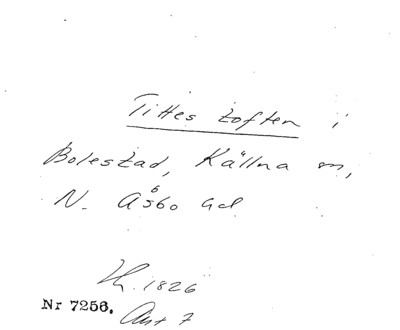 Tittes toften i
Bolestad, Källna sn,
N. Åsbo hd
Lh. 1826
Nr 7256.
Akt 7